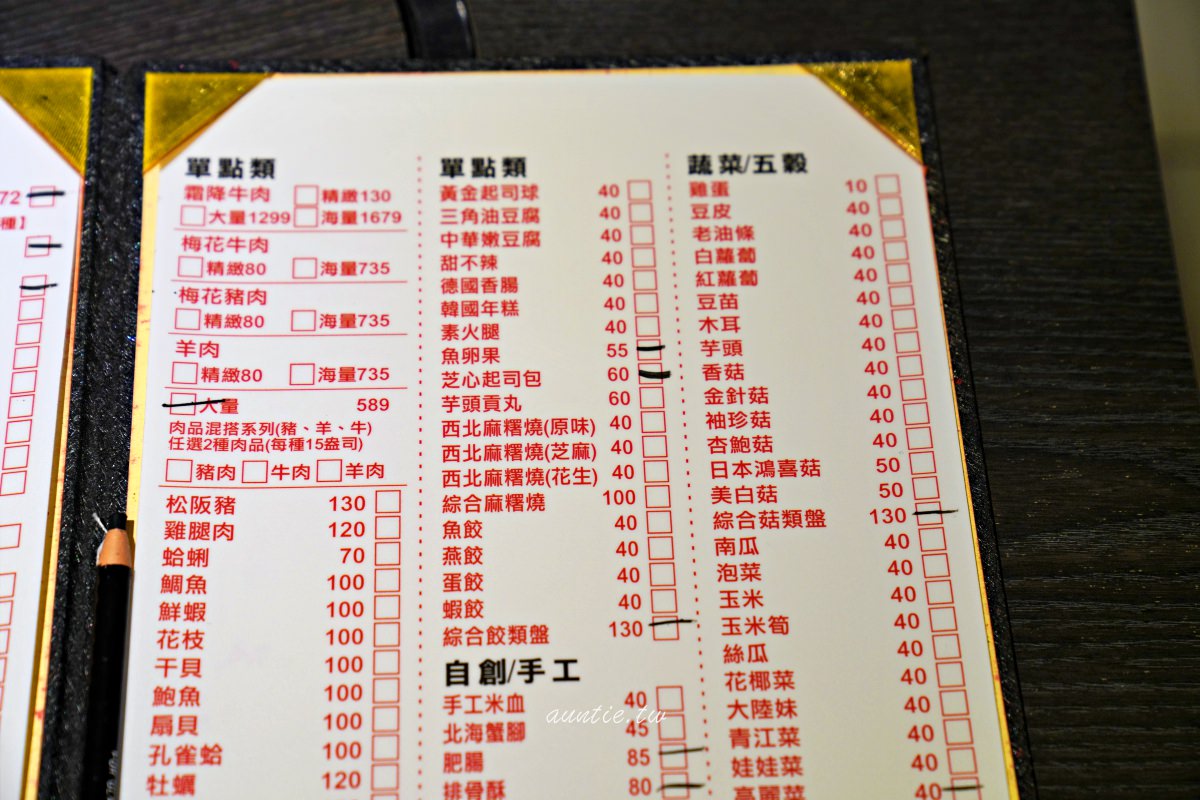 72
種】
單點類
霜降牛肉 精緻130
大量1299 海量1679
梅花牛肉
精緻80 海量735
梅花豬肉
精緻80 海量735
羊肉
精緻80 海量735
大量 589
肉品混搭系列(豬、羊、牛)
任選2種肉品(每種15盎司)
豬肉 牛肉 羊肉
松阪豬 130
雞腿肉 120
蛤蜊 70
鯛魚 100
鮮蝦 100
花枝 100
干貝 100
鮑魚 100
扇貝 100
孔雀蛤 100
牡蠣 120
單點類
黃金起司球 40
三角油豆腐 40
中華嫩豆腐 40
甜不辣 40
德國香腸 40
韓國年糕 40
素火腿 40
魚卵果 55
芝心起司包 60
芋頭貢丸 60
西北麻糬燒(原味) 40
西北麻糬燒(芝麻) 40
西北麻糬燒(花生) 40
綜合麻糬燒 100
魚餃 40
燕餃 40
蛋餃 40
蝦餃 40
綜合餃類盤 130
自創/手工
手工米血 40
北海蟹腳 45
肥腸 85
排骨酥 80
蔬菜/五穀
雞蛋 10
豆皮 40
老油條 40
白蘿蔔 40
紅蘿蔔 40
豆苗 40
木耳 40
芋頭 40
香菇 40
金針菇 40
袖珍菇 40
杏鮑菇 40
日本鴻喜菇 50
美白菇 50
綜合菇類盤 130
南瓜 40
泡菜 40
玉米 40
玉米筍 40
絲瓜 40
花椰菜 40
大陸妹 40
青江菜 40
娃娃菜 40
高麗菜 40
auntie.tw